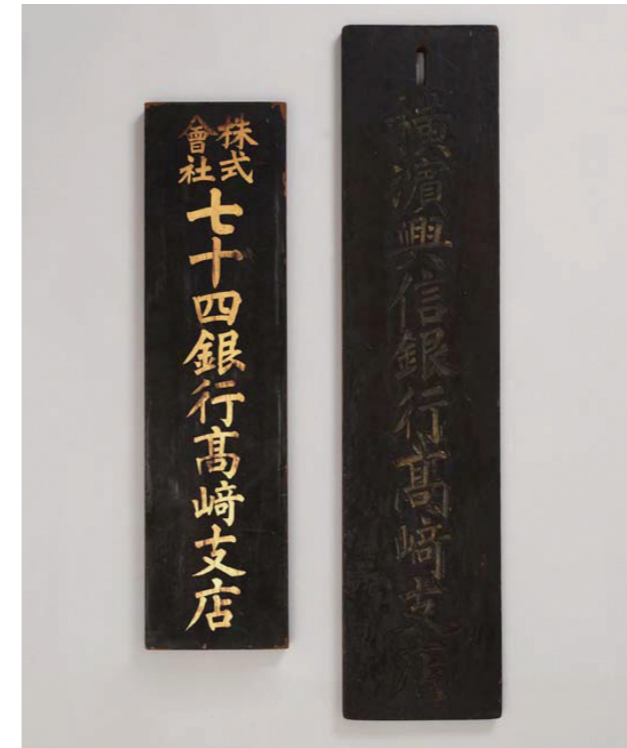 株式
會社
七十四銀行髙﨑支店
橫濱興信銀行髙﨑支店